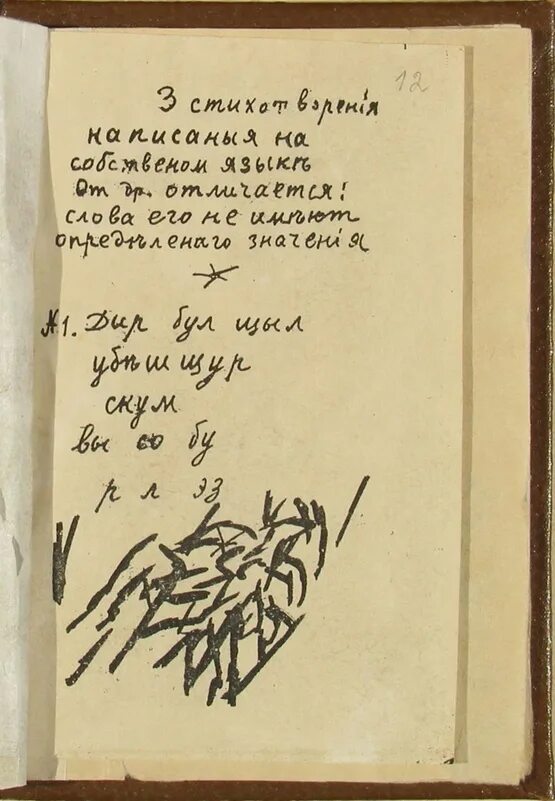 12
3 стихотворенія
написаныя на
собственом языкѣ
От др. отличается:
слова его не имѣют
опредѣленаго значенія
*
№1. Дыр бул щыл
убѣшщур
скум
вы со бу
р л эз